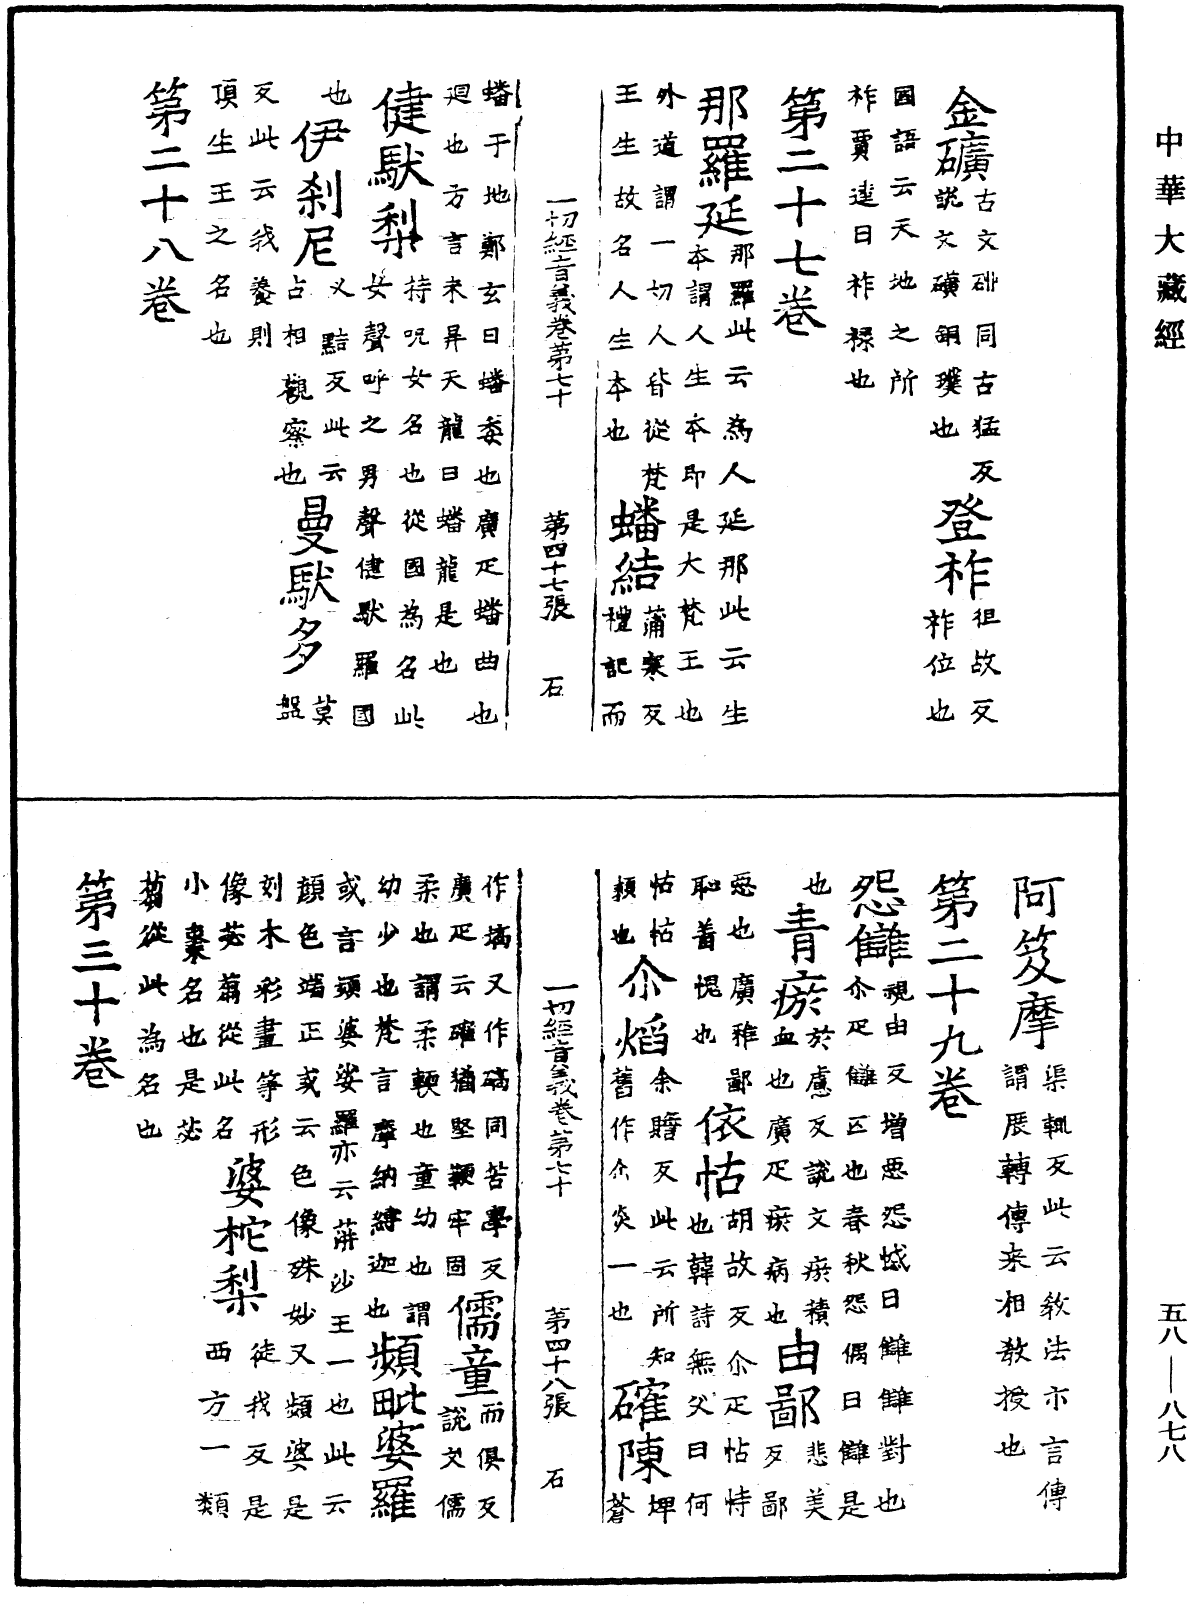 中華大藏經
金礦古文砂同古猛反說文礦銅璞也
登祚徂故反祚位也
國語云天地之所祚賈逵曰祚祿也
第二十七卷
那羅延那羅此云為人延那此云生本謂人生本即是大梵王也
外道謂一切人皆從梵王生故名人生本也
蟠結蒲寒反禮記而
一切經音義卷第七十 第四十七張 石
蟠于地鄭玄曰蟠委也廣疋蟠曲也
迴也方言未昇天龍曰蟠龍是也
健馱梨持呪女名也從國為名此女聲呼之男聲健馱羅國也
伊刹尼乂黠反此云占相觀察也
曼馱多莫盤
反此云我養則頂生王之名也
第二十八卷
阿笈摩渠輒反此云教法亦言傳謂展轉傳來相教授也
第二十九卷
怨讎視由反增惡怨憾曰讎讎對也尒疋讎匹也春秋怨偶曰讎是也
青瘀於慮反說文瘀積血也廣疋瘀病也
由鄙悲美反鄙
惡也廣雅鄙恥羞愧也
依怙胡故反尒疋怙恃也韓詩無父曰何
怙怙賴也
尒焰余贍反此云所知舊作尒炎一也
確陳埤蒼
一切經音義卷第七十 第四十八張 石
作塙又作碻同苦學反廣疋云確猶堅鞕牢固
儒童而俱反說文儒
柔也謂柔輭也童幼也謂幼少也梵言摩納縛迦也
頻毗婆羅
或言頭婆娑羅亦云蓱沙王一也此云顏色端正或云色像殊妙又頻婆是
刻木彩畫等形像苾蒭從此名
婆柁梨徒我反是西方一類
小棗名也是苾蒭從此為名也
第三十卷
五八—八七八